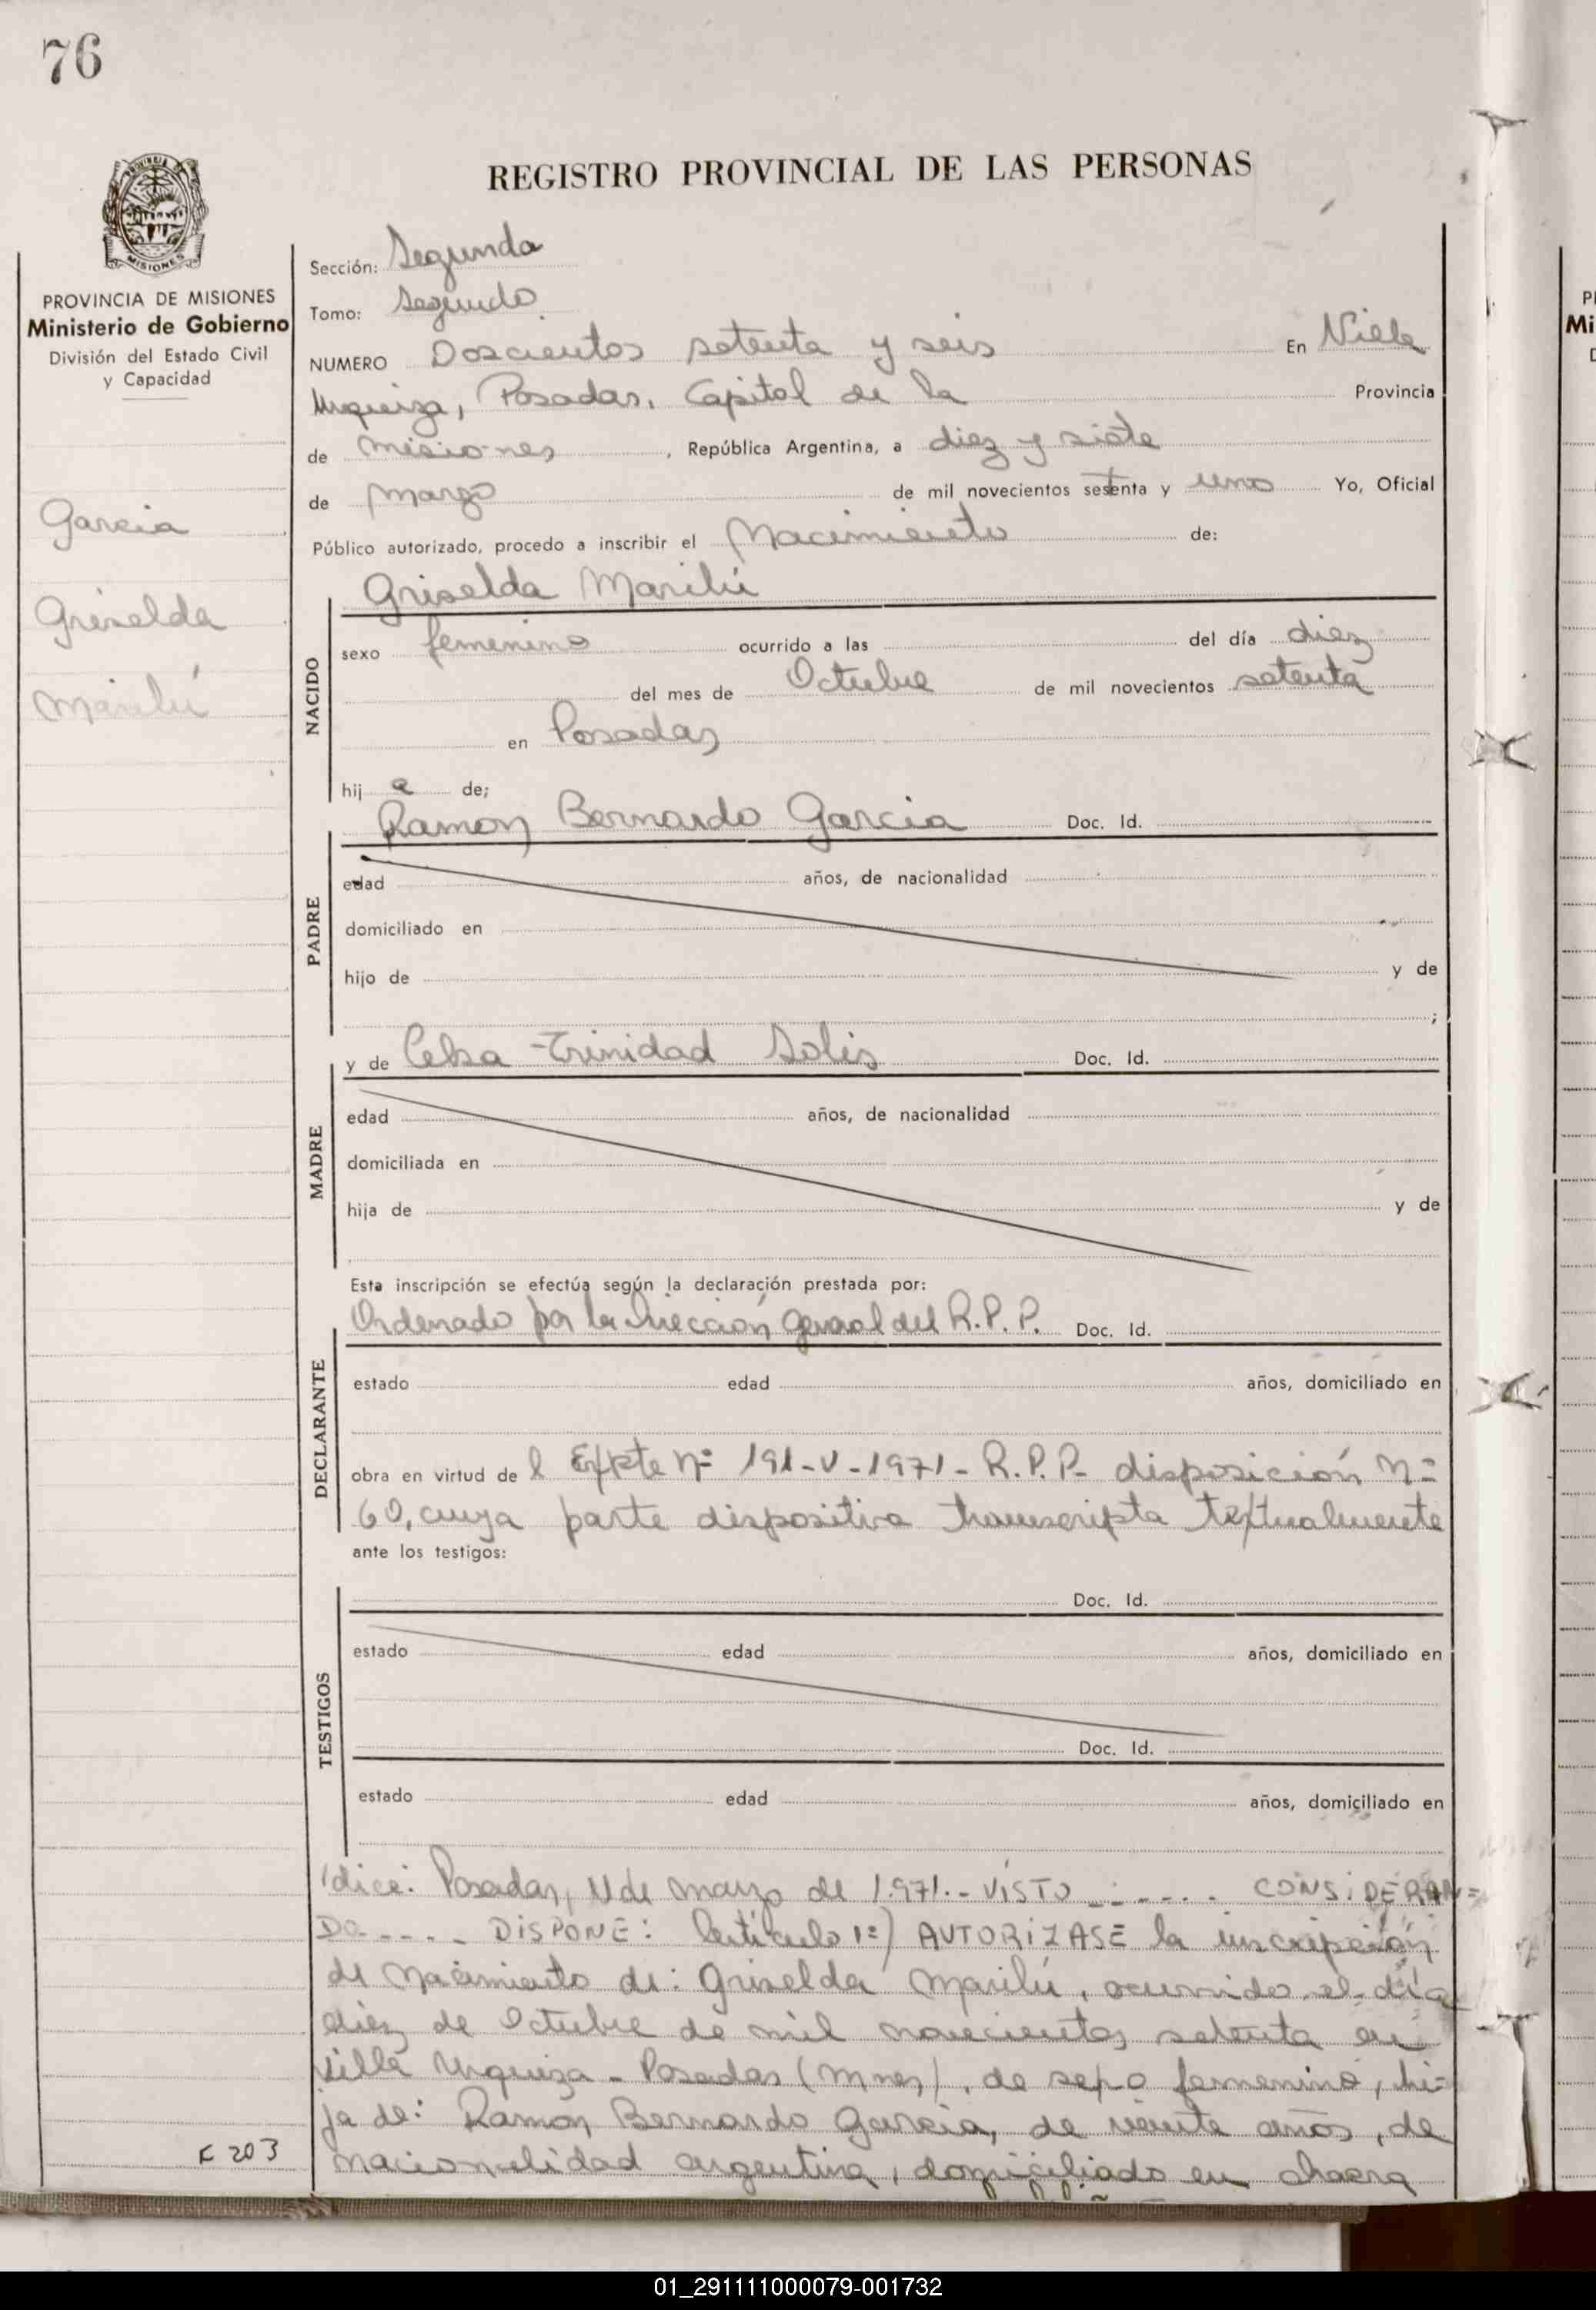 76
REGISTRO PROVINCIAL DE LAS PERSONAS
PROVINCIA DE MISIONES
MISIONES
PROVINCIA DE MISIONES
Ministerio de Gobierno
División del Estado Civil
y Capacidad
Garcia
Griselda
Marilú
F 203
Sección: Segunda
Tomo: Segundo
NUMERO Doscientos setenta y seis En Villa
Urquiza, Posadas, Capital de la Provincia
de Misiones, República Argentina, a diez y siete
de Marzo de mil novecientos setenta y uno Yo, Oficial
Público autorizado, procedo a inscribir el Nacimiento de:
NACIDO
Griselda Marilú
sexo femenino ocurrido a las del día diez
del mes de Octubre de mil novecientos setenta
en Posadas
hij a de;
PADRE
Ramon Bernardo Garcia Doc. Id.
edad años, de nacionalidad
domiciliado en
hijo de y de
;
MADRE
y de Celsa Trinidad Solis Doc. Id.
edad años, de nacionalidad
domiciliada en
hija de y de
Esta inscripción se efectúa según la declaración prestada por:
DECLARANTE
Ordenado por la Dirección General del R.P.P. Doc. Id.
estado edad años, domiciliado en
obra en virtud de l Expte Nº 191-V-1971- R.P.P- disposición Nº
60, cuya parte dispositiva transcripta textualmente
ante los testigos:
TESTIGOS
Doc. Id.
estado edad años, domiciliado en
Doc. Id.
estado edad años, domiciliado en
dice: Posadas, 11 de marzo de 1.971.- VISTO ...... CONSIDERAN=
DO..... DISPONE: Artículo 1º) AUTORIZASE la inscripción
de nacimiento de: Griselda Marilú, ocurrido el día
diez de Octubre de mil novecientos setenta en
Villa Urquiza - Posadas (Mnes), de sexo femenino, hi=
ja de: Ramón Bernardo Garcia, de veinte años, de
nacionalidad argentina, domiciliado en chacra
01_291111000079-001732